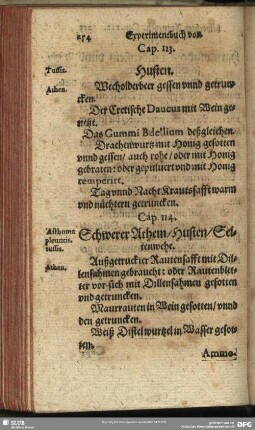 254 Experimentbuch von
Cap. 113.
Tussis. Husten.
Athen. Wecholderbeer gessen vnnd getrun-
cken.
Der Cretische Daucus mit Wein ge-
netzt.
Das Gummi Bdellium deßgleichen.
Drachenwurtz mit Honig gesotten
vnnd gessen/ auch rohe/ oder mit Honig
gebraten: oder gepüluert vnd mit Honig
temperirt.
Tag vnnd Nacht Krautsafft warm
vnd nüchtern getruncken.
Cap. 114.
Asthma Schwerer Athem/ Husten/ Sei-
pleuritis. tenwehe.
tussis.
Außgetruckter Rautensafft mit Dil-
Athen. lensahmen gebraucht: oder Rautenblet-
ter vor sich mit Dillensahmen gesotten
vnd getruncken.
Maurrauten in Wein gesotten/ vnnd
den getruncken.
Weiß Distelwurtzel in Wasser gesot-
ten.
Ammo-
SLUB
DFG